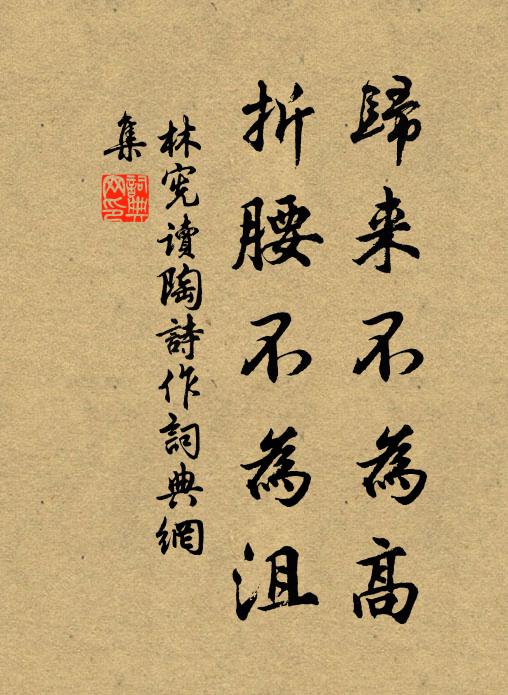 歸来不為高
折腰不為沮
林宪讀陶詩作詞典網
集
詞典网印